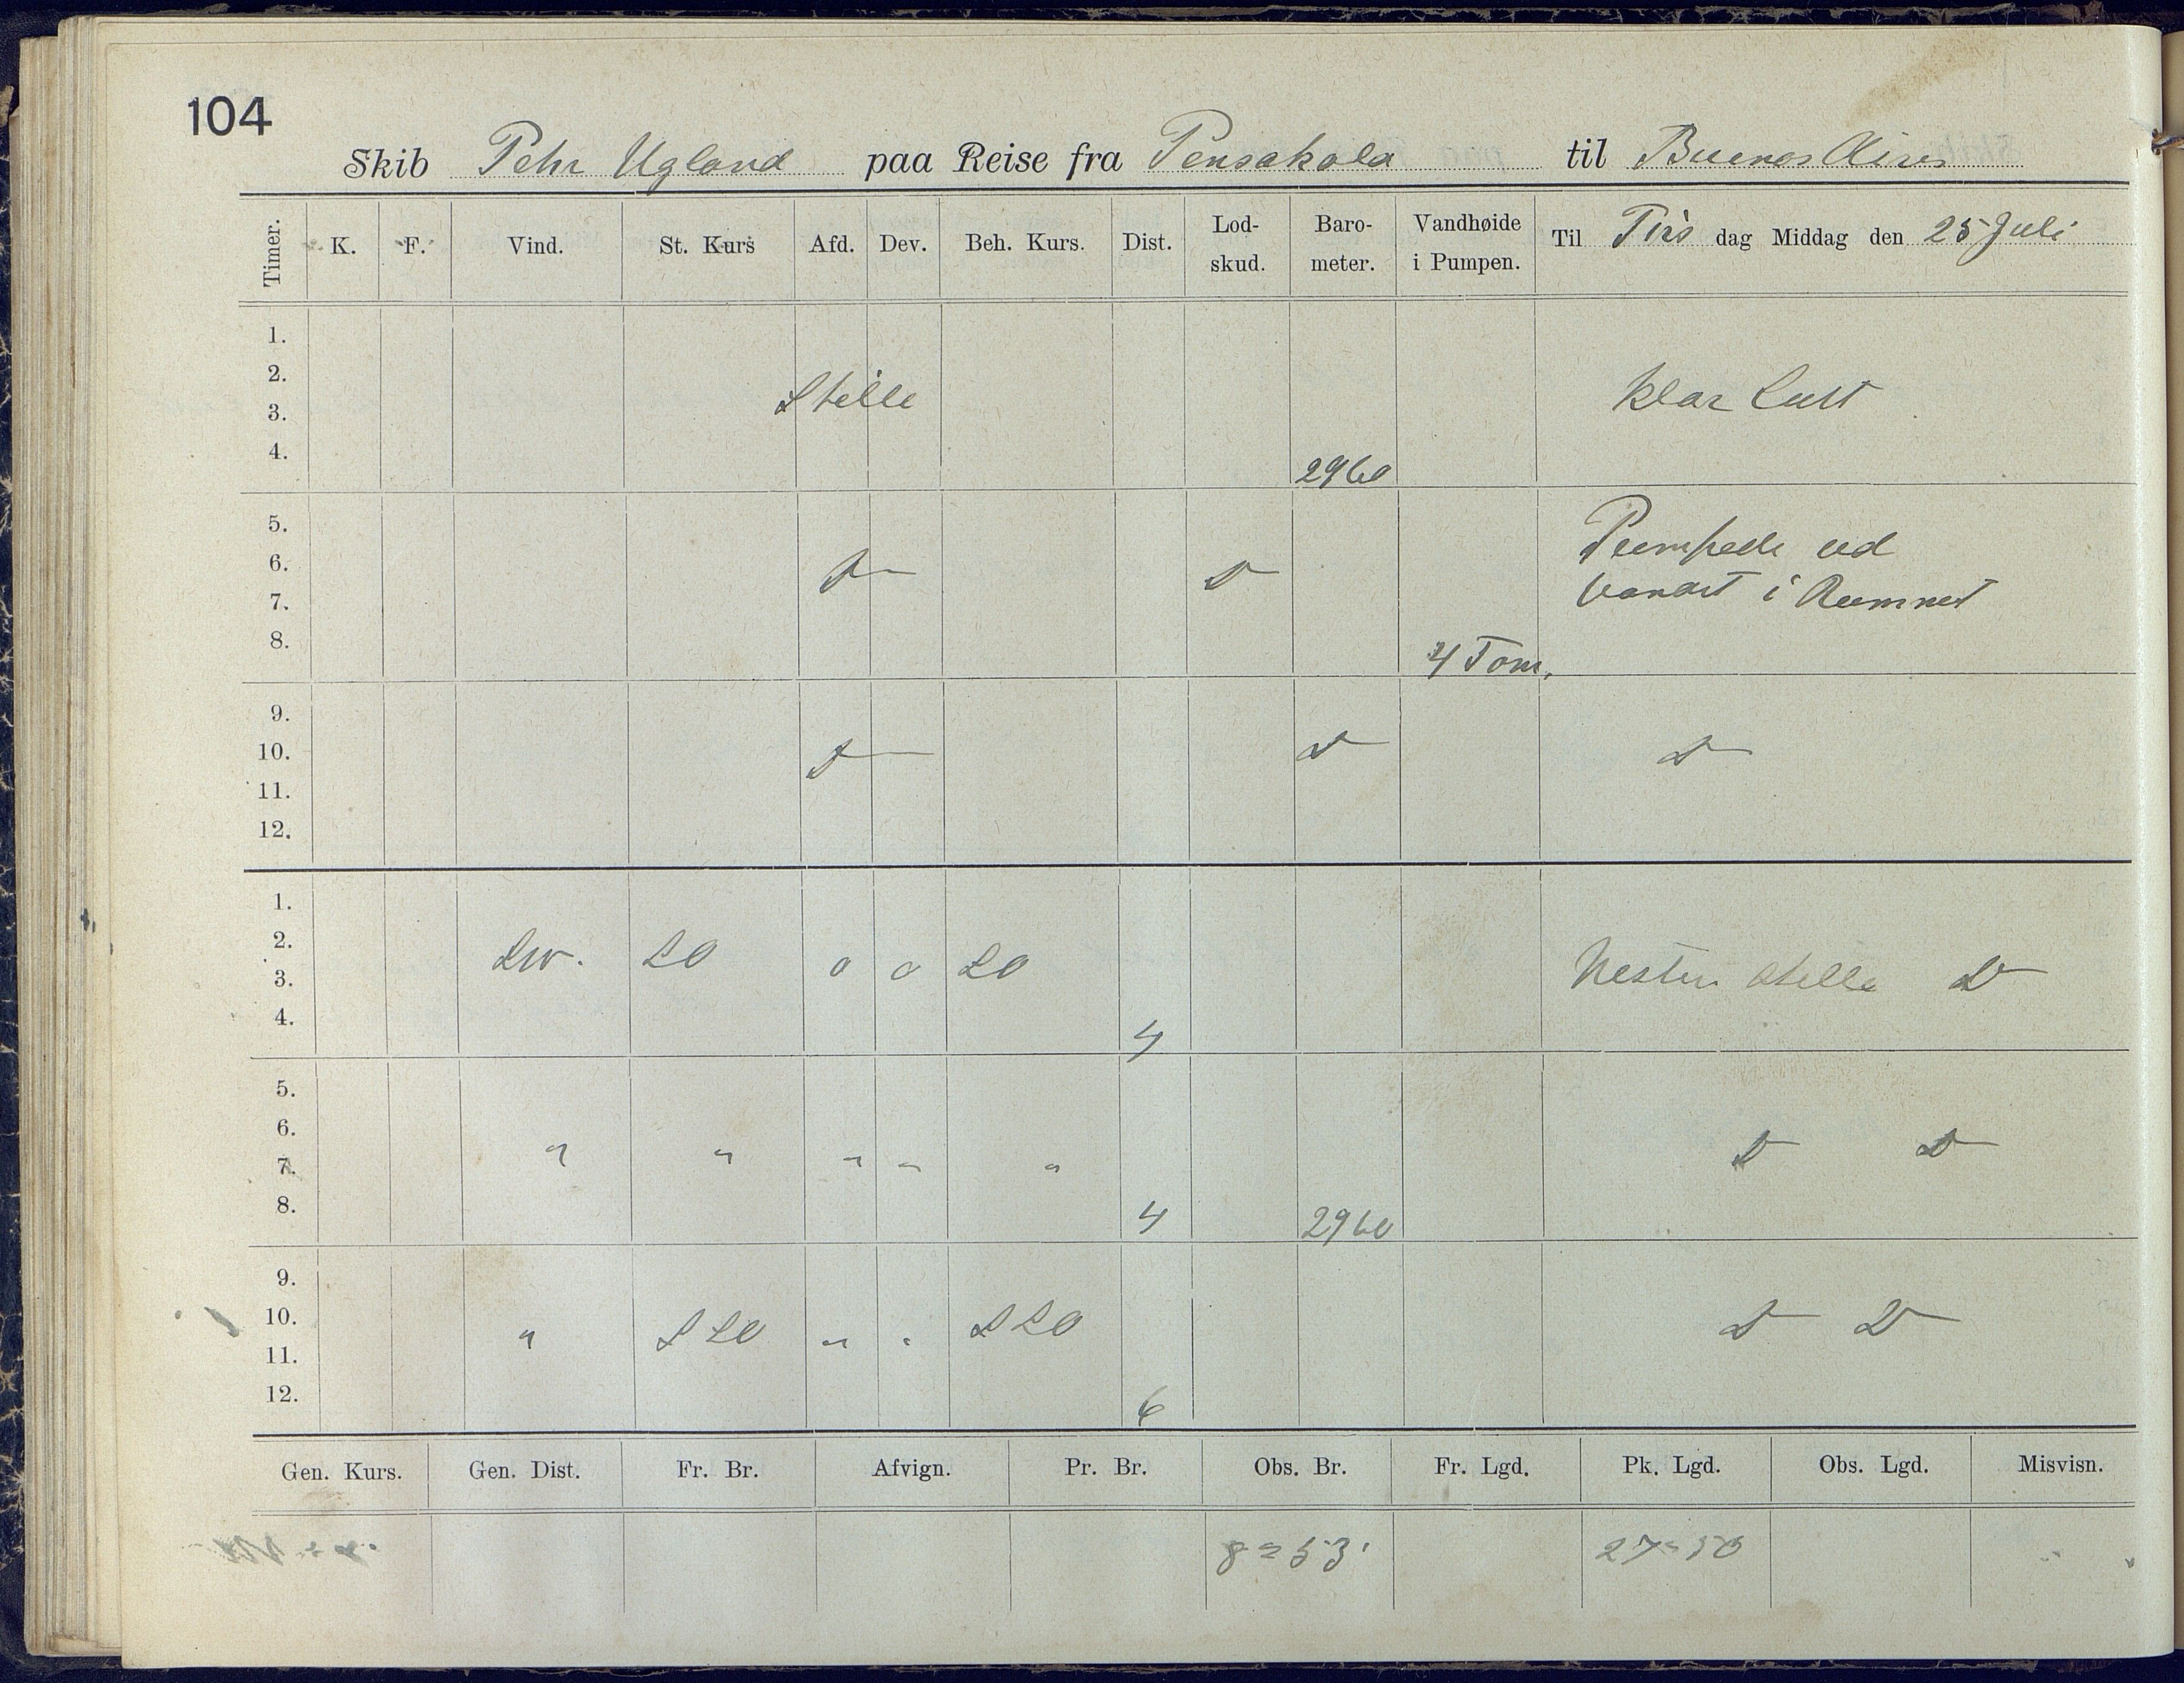 104
Skib Pehr Ugland paa Reise fra Pensakola til Buenos Aires
Timer. K. F. Vind. St. Kurs Afd. Dev. Beh. Kurs. Dist. Lod-skud. Baro-meter. Vandhøide i Pumpen. Til Tirs dag Middag den 25 Juli
1.
2.
3. Stille Klar Luft
4. 2960
5. Pumpede ud
6. D D
7. vandt i Rummet
8. 4 Tom.
9.
10. D D D
11.
12.
1.
2. SW. SO 0 0 SO Nesten stille D
3.
4. 4
5.
6. D D
7. " " " " "
8. 4 2960
9.
10. " SSO " " SSO D D
11.
12. 6
Gen. Kurs. Gen. Dist. Fr. Br. Afvign. Pr. Br. Obs. Br. Fr. Lgd. Pk. Lgd. Obs. Lgd. Misvisn.
8=53' 27=50